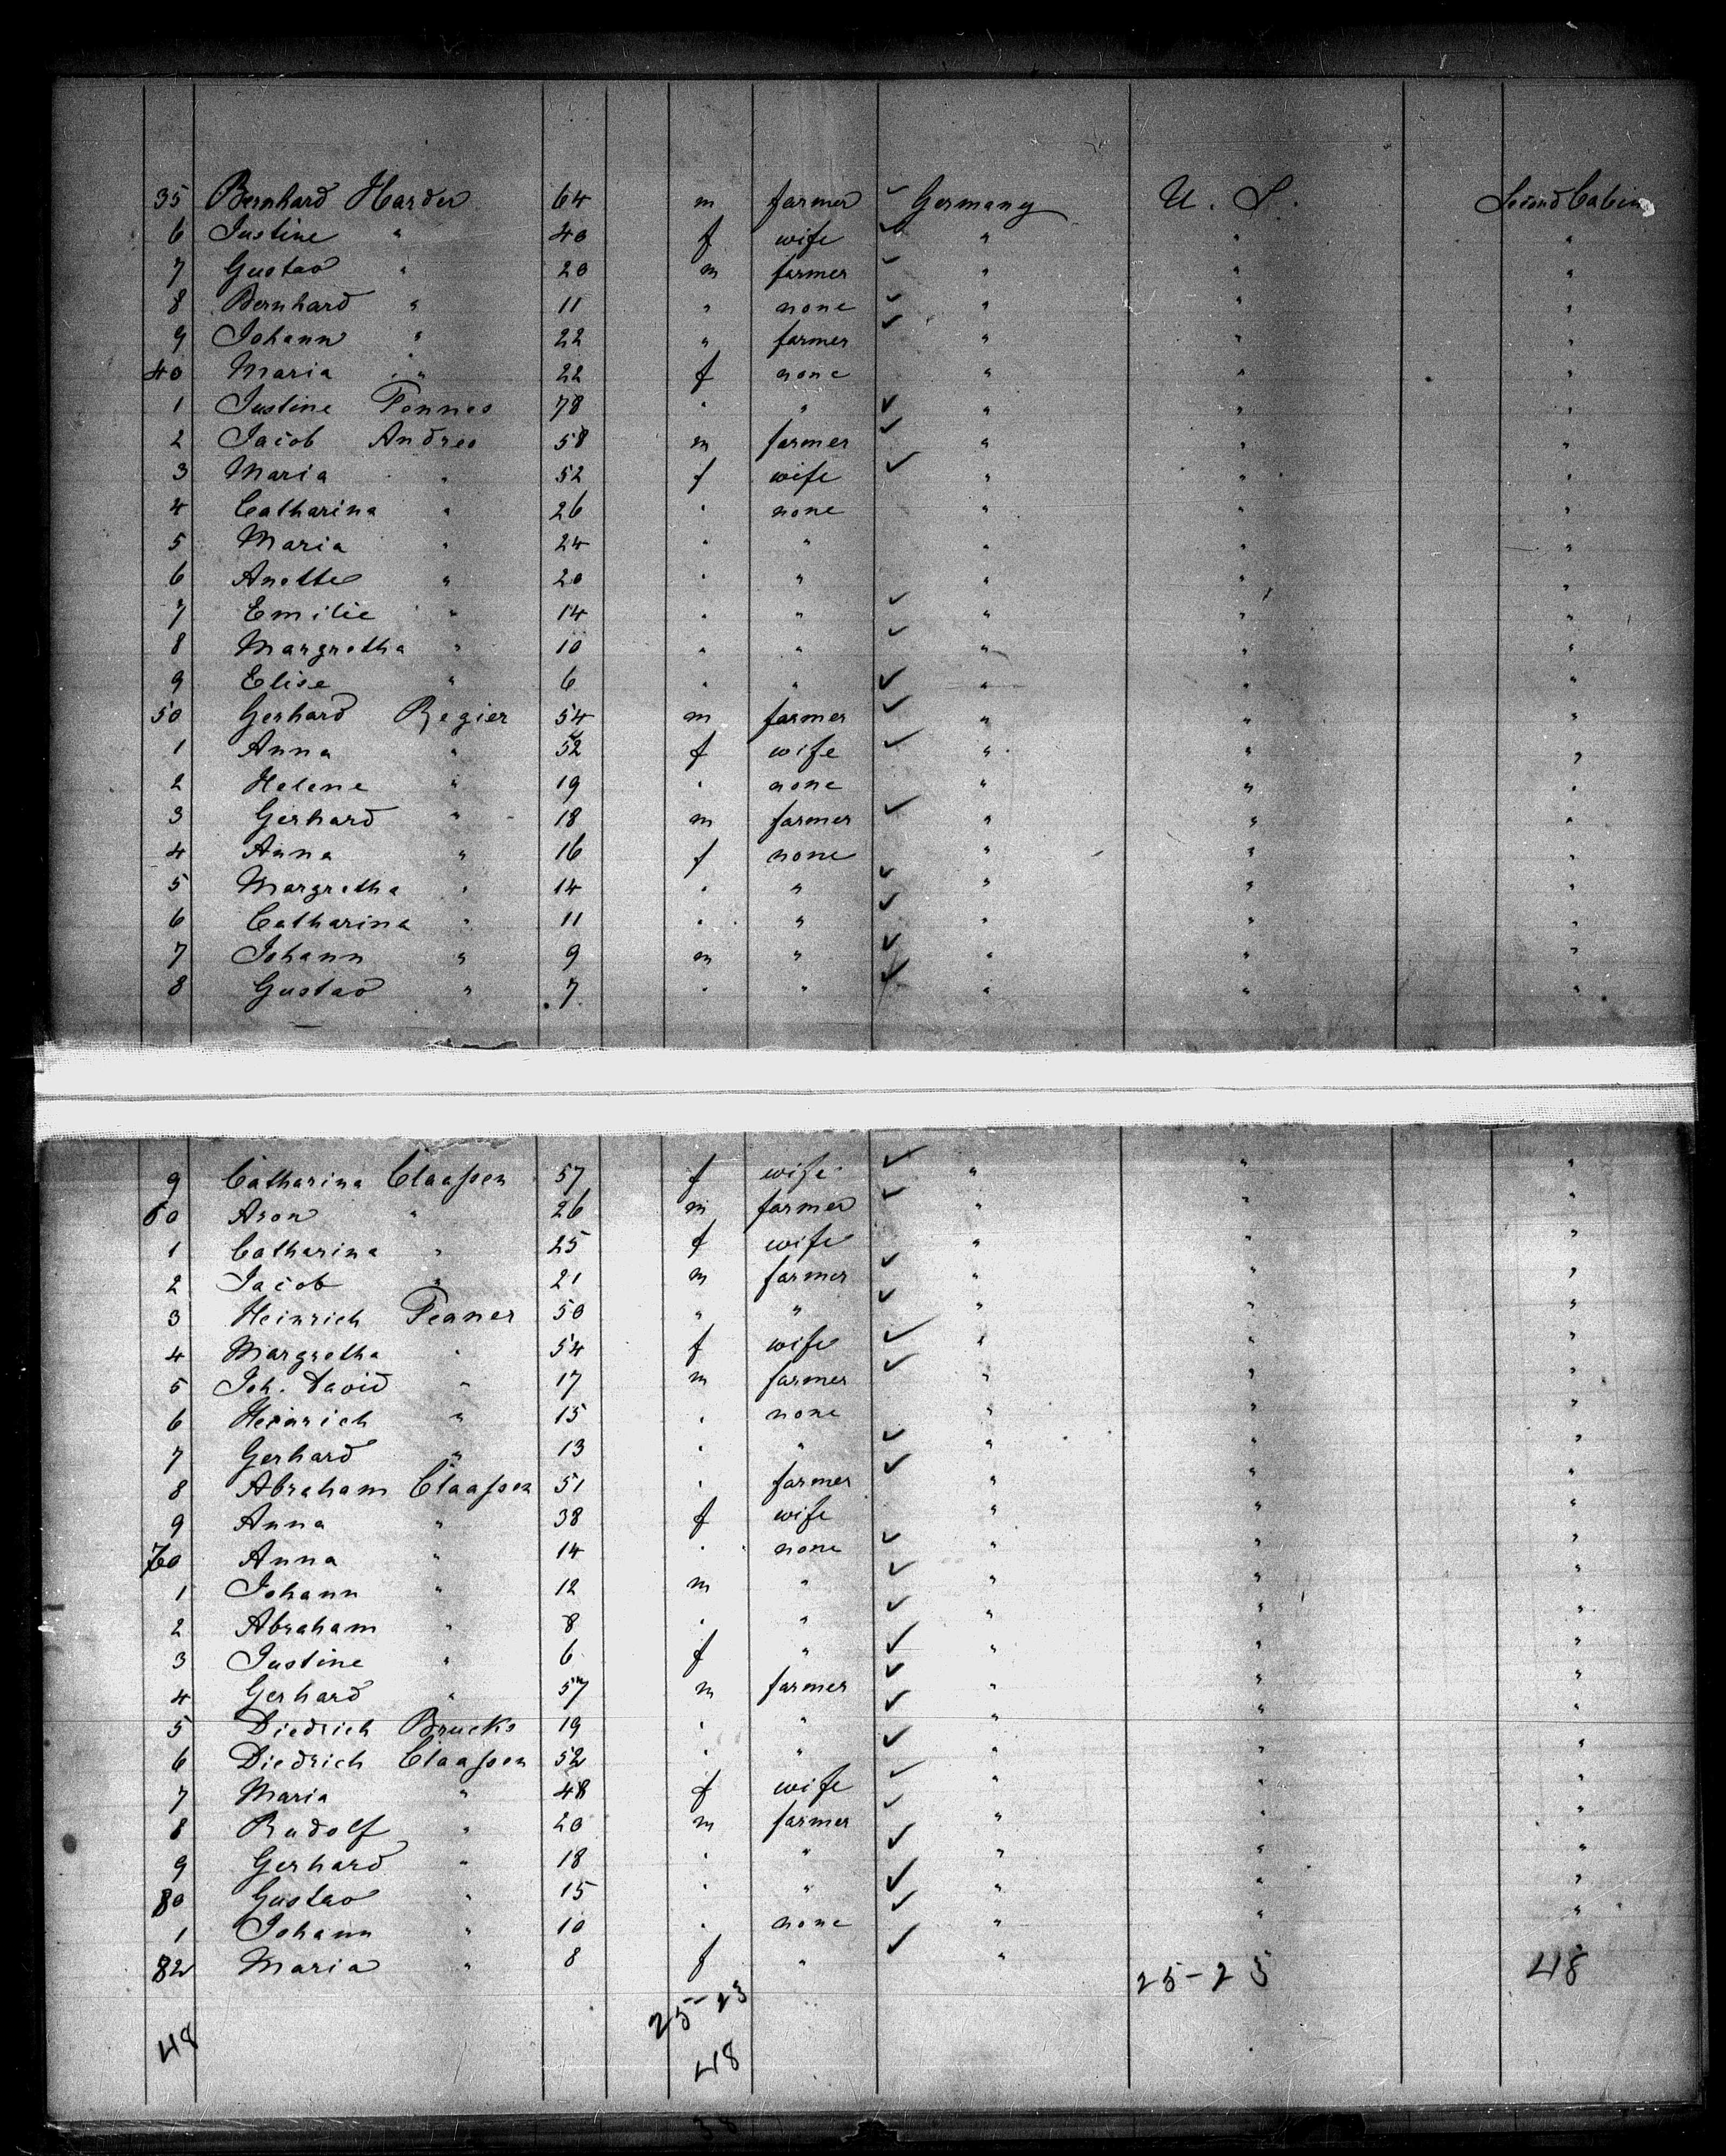 35 Bernhard Harder 64 m farmer ✓ Germany U. S. Second Cabin
6 Justine " 40 f wife ✓ " " "
7 Gustav " 20 m farmer ✓ " " "
8 Bernhard " 11 " none ✓ " " "
9 Johann " 22 " farmer ✓ " " "
40 Maria " 22 f none " " "
1 Justine 78 " " ✓ " " "
2 Jacob Andres 58 m farmer ✓ " " "
3 Maria " 52 f wife ✓ " " "
4 Catharina " 26 " none " " "
5 Maria " 24 " " " " "
6 Anette " 20 " " " " "
7 Emilie " 14 " " ✓ " " "
8 Margretha " 10 " " ✓ " " "
9 Elise " 6 " " ✓ " " "
50 Gerhard Regier 54 m farmer ✓ " " "
1 Anna " 52 f wife ✓ " " "
2 Helene " 19 " none " " "
3 Gerhard " 18 m farmer ✓ " " "
4 Anna " 16 f none " " "
5 Margretha " 14 " " ✓ " " "
6 Catharina " 11 " " ✓ " " "
7 Johann " 9 m " ✓ " " "
8 Gustav " 7 " " ✓ " " "
9 Catharina Claaßen 57 f wife ✓ " " "
60 Aron " 26 m farmer ✓ " " "
1 Catharina " 25 f wife " " "
2 Jacob " 21 m farmer ✓ " " "
3 Heinrich 50 " " ✓ " " "
4 Margretha " 54 f wife ✓ " " "
5 Joh. David " 17 m farmer ✓ " " "
6 Heinrich " 15 " none " " "
7 Gerhard " 13 " " ✓ " " "
8 Abraham Claaßen 51 " farmer ✓ " " "
9 Anna " 38 f wife " " "
70 Anna " 14 " none ✓ " " "
1 Johann " 12 m " ✓ " " "
2 Abraham " 8 " " ✓ " " "
3 Justine " 6 f " ✓ " " "
4 Gerhard " 57 m farmer ✓ " " "
5 Diedrich Brucks 19 " " ✓ " " "
6 Diedrich Claaßen 52 " " ✓ " " "
7 Maria " 48 f wife ✓ " " "
8 Rudolf " 20 m farmer ✓ " " "
9 Gerhard " 18 " " ✓ " " "
80 Gustav " 15 " " ✓ " " "
1 Johann " 10 " none ✓ " " "
82 Maria " 8 f " ✓ " "
25-23 48
25-23
48 48